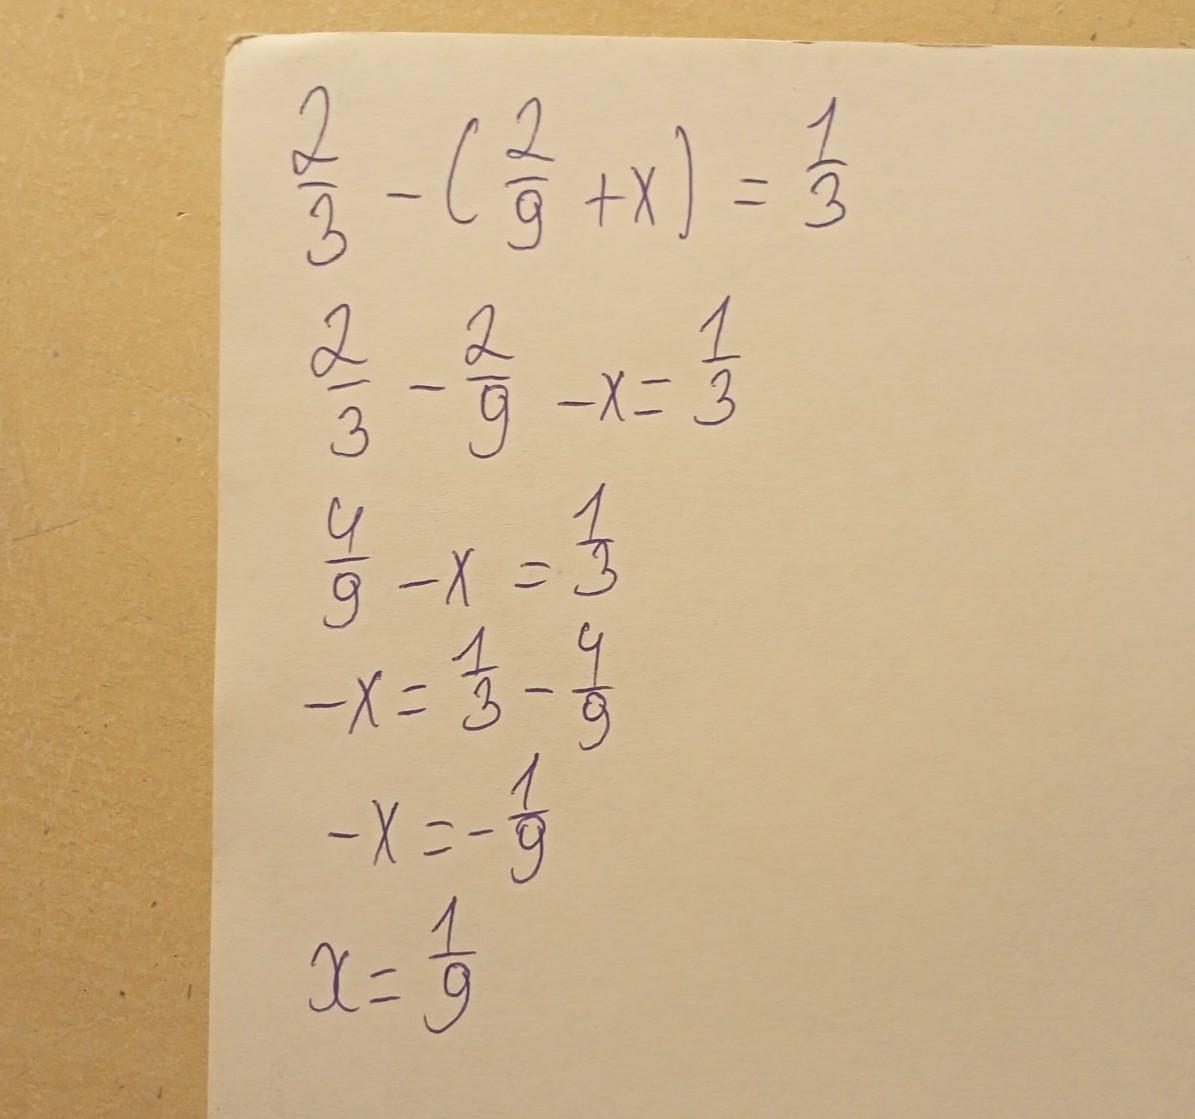 2/3 - (2/9 + x) = 1/3
2/3 - 2/9 - x = 1/3
4/9 - x = 1/3
-x = 1/3 - 4/9
-x = -1/9
x = 1/9